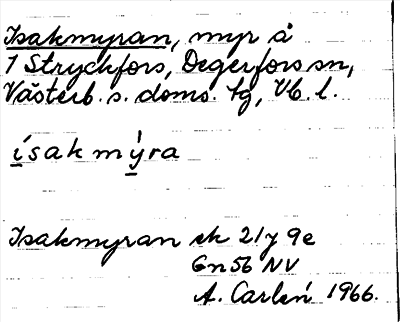 Isakmyran, myr å
1 Stryckfors, Degerfors sn,
Västerb. s. doms. tg, Vb. l.
ísakmýra
Isakmyran ek 21/y 9e
Gn 56 NV
A. Carlén 1966.